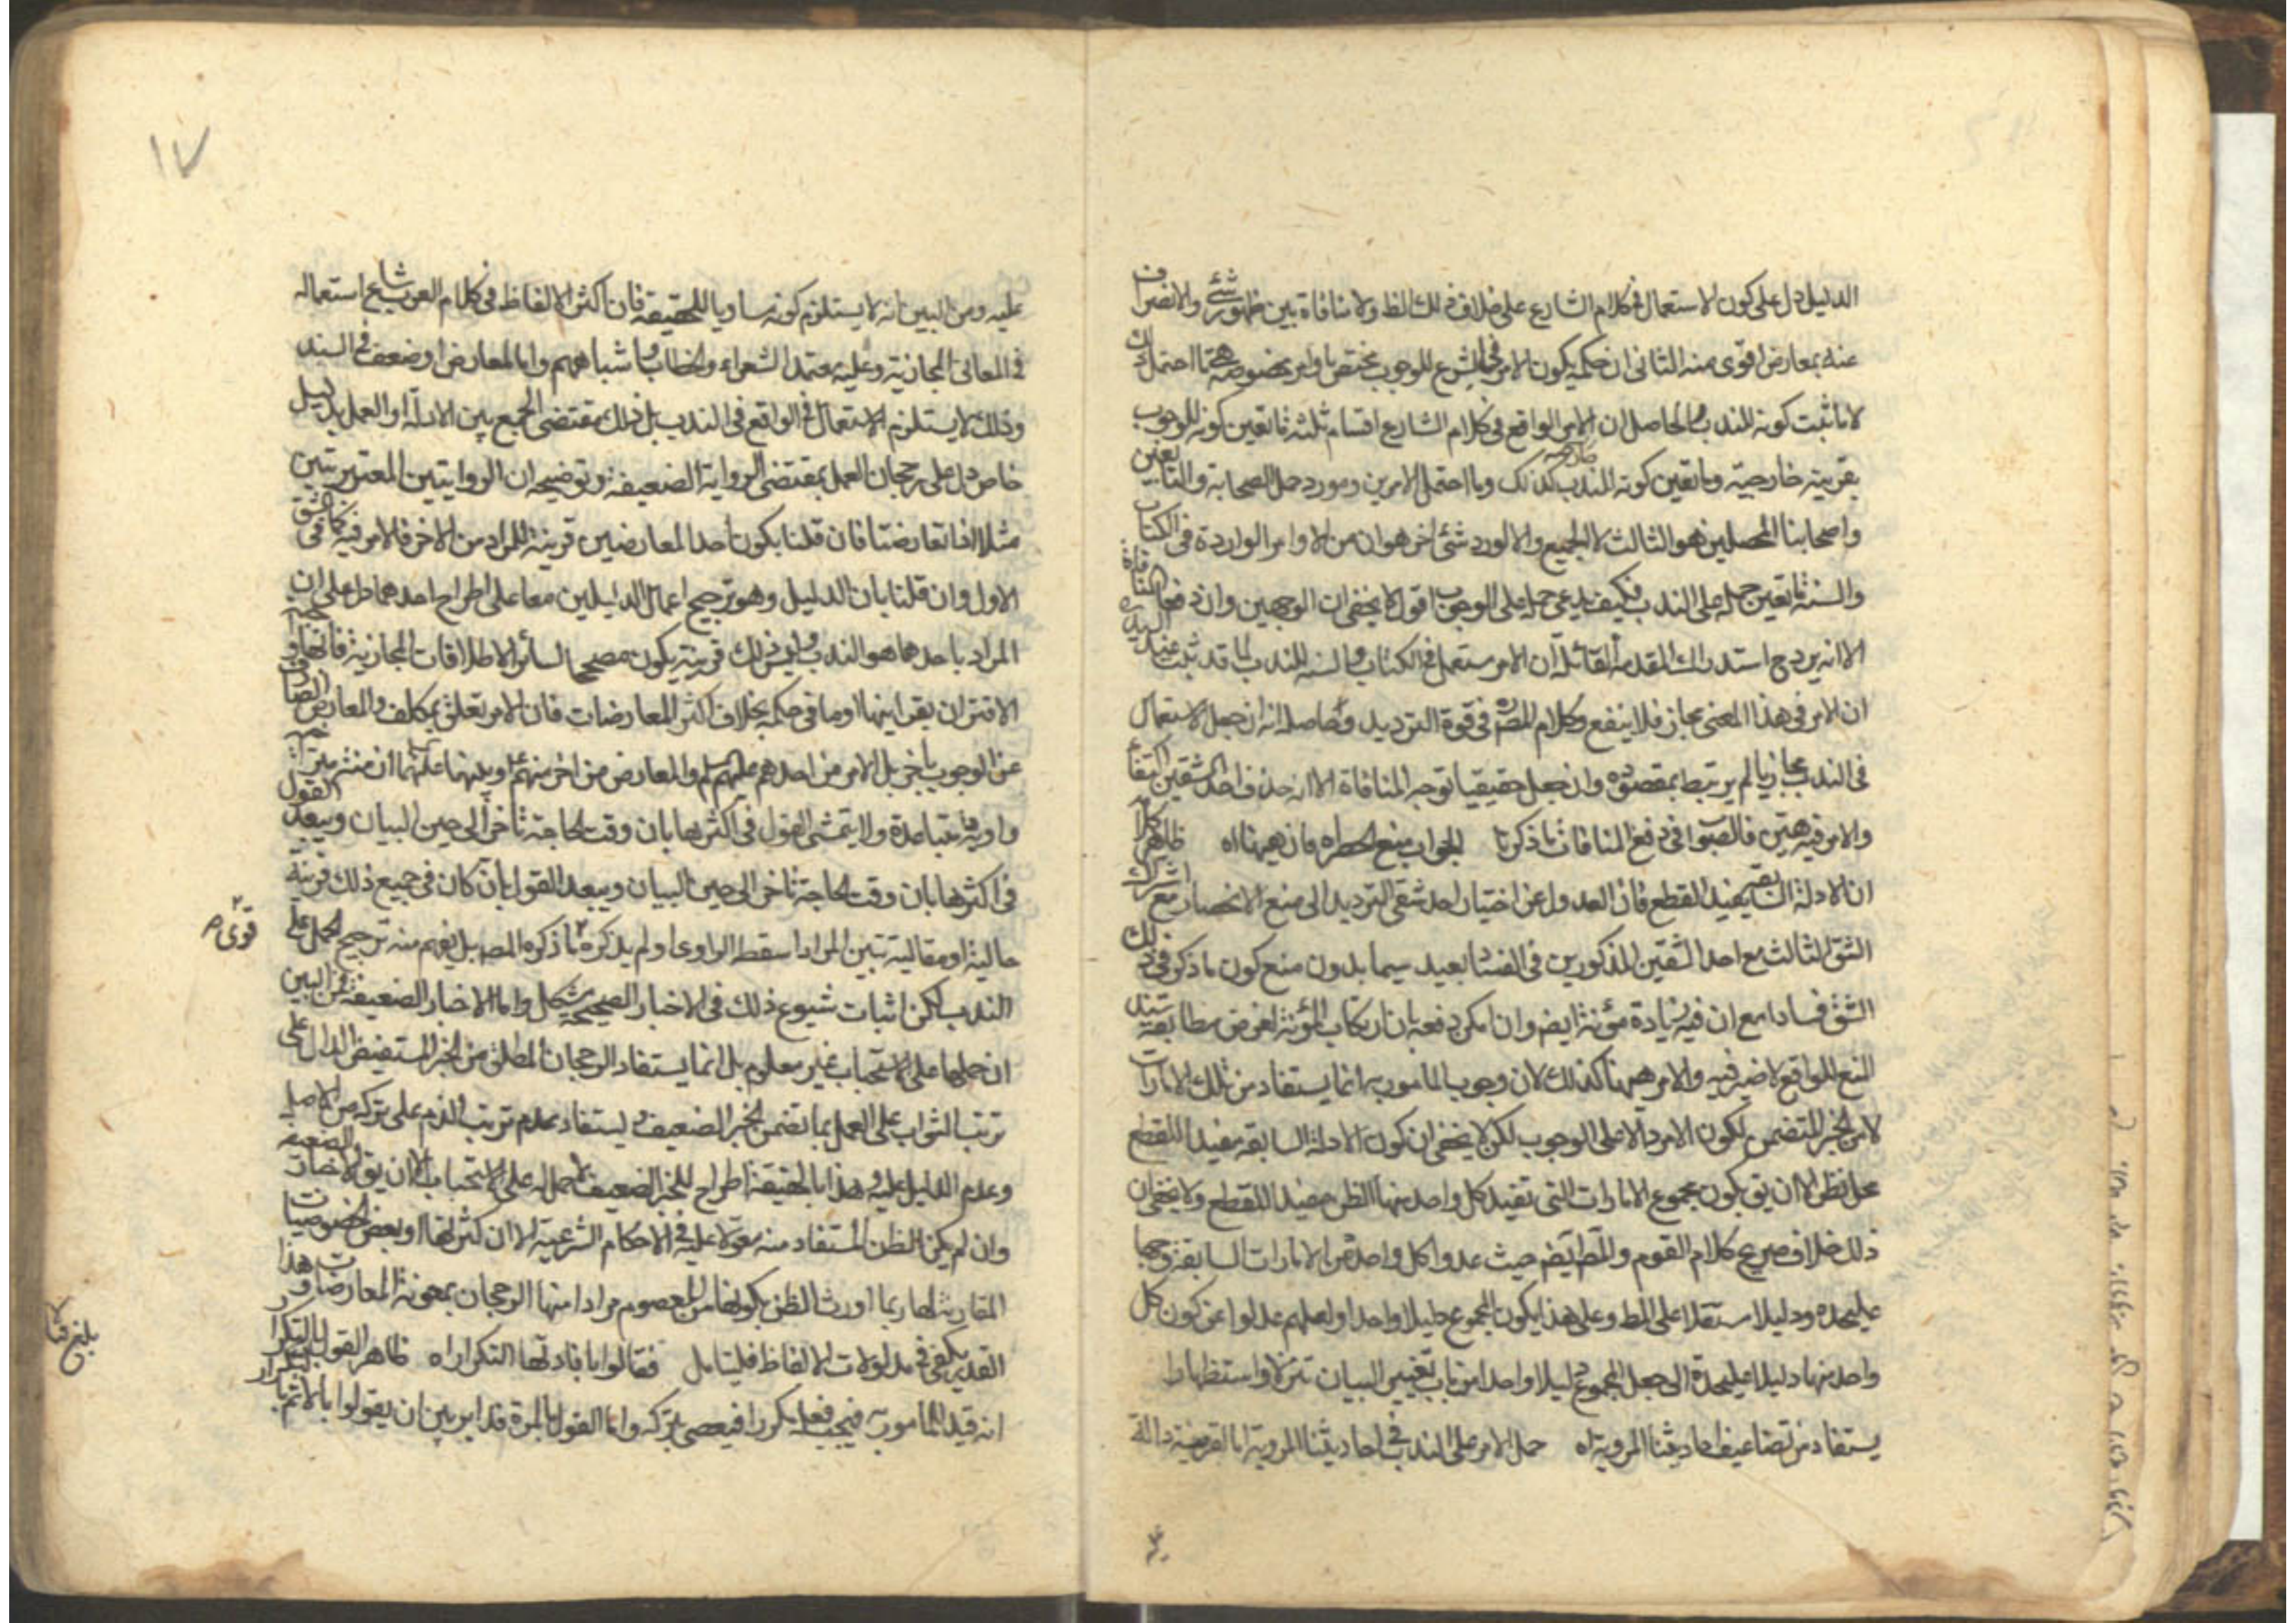 الدليل دل على كون الاستعمال في كلام الشارع على خلاف ذلك الظ ولا منافاة بين ظهور شئ والانصراف
عنه بمعارض اقوى منه الثاني ان حكمه بكون الامر في الشرع للوجوب يختص باوامر بخصوصه مما احتمل
لا ما ثبت كونه للندب والحاصل ان الامر الواقع في كلام الشارع اقسام ثلثة ما تعين كونه للوجوب
بقرينة خارجية وما تعين كونه للندب كذلك وما احتمل الامرين ومورد حمل الصحابة والتابعين
واصحابنا المحصلين هو الثالث لا الجميع والا لورد شئ اخر هو ان من الاوامر الواردة في الكتاب
والسنة ما تعين حمله على الندب فكيف يدعى حمله على الوجوب اقول لا يخفى ان الوجهين وان دفعا المنافاة
الا انه يرد ح استدراك المقدمة القائلة ان الامر مستعمل في الكتاب والسنة للندب لما قد ثبت عند السيد ره
ان الامر في هذا المعنى مجاز فلا ينفع وكلام المص ره في قوة الترديد وحاصله انه ان جعل الاستعمال
في الندب مجازيا لم يرتبط بمقصوده وان جعل حقيقيا توجه المنافاة الا انه حذف احد الشقين اكتفاء
والامر فيه هين فالصواب في دفع المنافات ما ذكرنا الجواب منع الحصر اه فان هيهنا اه ظاهر كلامه
ان الادلة السابقة يفيد القطع فان العدول عن اختيار احد شقي الترديد الى منع الانحصار مع اشتراك
الشق الثالث مع احد الشقين المذكورين في الفساد بعيد سيما بدون منع كون ما ذكر في ذلك
الشق فسادا مع ان فيه زيادة مؤنة ايض وان امكن دفعه بان ارتكاب المؤنة لغرض مطابقة سند
المنع للواقع لا ضير فيه والامر هيهنا كذلك لان وجوب المامور به انما يستفاد من تلك الامارات
لا من الخبر المتضمن لكون الامر دالا على الوجوب لكن لا يخفى ان كون الادلة السابقة مفيدا للقطع
محل نظر الا ان يق بكون مجموع الامارات التي تفيد كل واحد منها الظن مفيدا للقطع ولا يخفى ان
ذلك خلاف صريح كلام القوم والمط ايض حيث عدوا كل واحد من الامارات السابقة وجها
عليحده ودليلا مستقلا على المط وعلى هذا يكون المجموع دليلا واحدا ولعلهم عدلوا عن كون كل
واحد منها دليلا عليحدة الى جعل المجموع دليلا واحدا من باب تغيير البيان تنزلا واستظهارا
يستفاد من تضاعيف احاديثنا المروية اه حمل الامر على الندب في احاديثنا المروية اما لقرينة دالة
١٧
عليه ومن البين انه لا يستلزم كونه مساويا للحقيقة فان اكثر الالفاظ في كلام العرب شايع استعماله
في المعاني المجازية وعليه معتمد الشعراء والخطاب واشباههم واما لمعارض او ضعف في السند
وذلك لا يستلزم الاستعمال في الواقع في الندب بل ذلك بمقتضى الجمع بين الادلة او العمل بدليل
خاص دل على رجحان العمل بمقتضى الرواية الضعيفة وتوضيحه ان الروايتين المعتبرتين
مثلا اذا تعارضتا فان قلنا بكون احد المعارضين قرينة للمراد من الاخر فالامر فيه كما في الشق
الاول وان قلنا بان الدليل وهو ترجيح اعمال الدليلين معا على اطراح احدهما دل على ان
المراد باحدهما هو الندب وليس ذلك قرينة يكون مصححا لسائر الاطلاقات المجازية فانها
الاقتران بقراينها او ما في حكمه بخلاف اكثر المعارضات فان الامر تعلق بمكلف والمعارض الصارف
عن الوجوب باخر بل الامر من احدهم عليهم السلم والمعارض من اخر منهم ع وبينهما
واوقات متباعدة ولا يتمشى القول في اكثرها بان وقت الحاجة تاخر الى حين البيان ويبعد القول
في اكثرها بان وقت الحاجة تاخر الى حين البيان ويبعد القول بان كان في جميع ذلك قرينة
حالية او مقالية تبين المراد اسقطه الراوي ولم يذكره ما ذكره المص بل يفهم منه ترجيح الحمل على
قوى م
الندب لكن اثبات شيوع ذلك في الاخبار الصحيحة مشكل واما الاخبار الضعيفة فمن البين
ان حملها على الاستحباب غير معلوم بل انما يستفاد الرجحان المطلق من الخبر المستفيض الدال على
ترتب الثواب على العمل بما تضمن الخبر الضعيف ويستفاد عدم ترتب الذم على تركه من الاصل
وعدم الدليل عليه وهذا بالحقيقة اطراح للخبر الضعيف لا حمل له على الاستحباب الا ان يق الاخبار الضعيفة
وان لم يكن الظن المستفاد منه معولا عليه في الاحكام الشرعية الا ان كثرتها او بعض الخصوصيات
المقارنة لها ربما اورث الظن بكونها من المعصوم مرادا منها الرجحان بمعونة المعارضات وهذا
القدر يكفي في مدلولات الالفاظ فليتامل فقالوا بافادتها التكرار اه ظاهر القول بالتكرار
انه قيد للمامور به فيجب فعله مكررا فيعصى بتركه واما القول بالمرة فدائر بين ان يقولوا